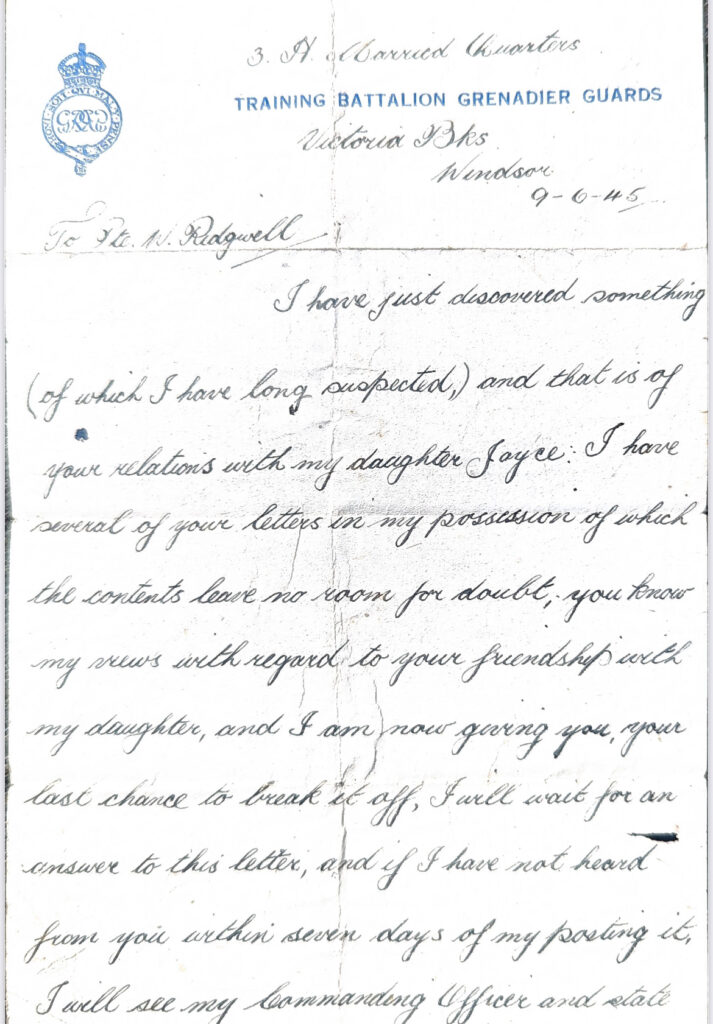 3. A. Married Quarters
TRAINING BATTALION GRENADIER GUARDS
Victoria Bks
Windsor
9-6-45
HONI SOIT QUI MAL Y PENSE
To Pte. W. Ridgwell
I have just discovered something
(of which I have long suspected,) and that is of
your relations with my daughter Joyce: I have
several of your letters in my possession of which
the contents leave no room for doubt, you know
my views with regard to your friendship with
my daughter, and I am now giving you, your
last chance to break it off, I will wait for an
answer to this letter, and if I have not heard
from you within seven days of my posting it,
I will see my Commanding Officer and state